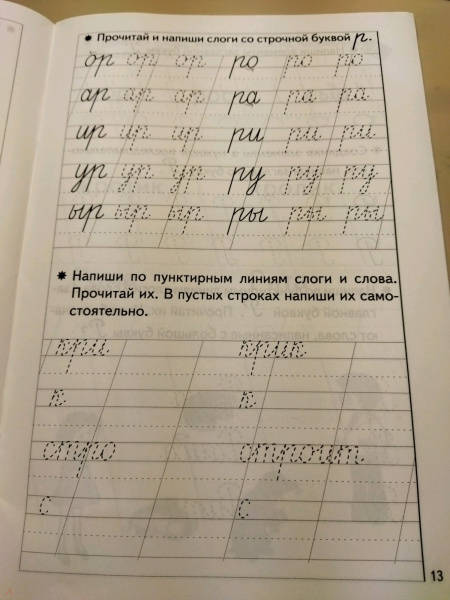 * Прочитай и напиши слоги со строчной буквой р.
ор ор ор ро ро ро
ар ар ар ра ра ра
ир ир ир ри ри ри
ур ур ур ру ру ру
ыр ыр ыр ры ры ры
* Напиши по пунктирным линиям слоги и слова.
Прочитай их. В пустых строках напиши их само-
стоятельно.
кри крик
к к
стро строит
с с
13